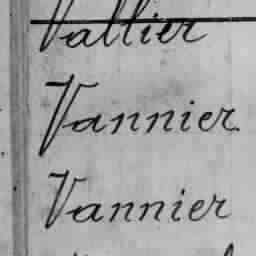 Vallier
Vannier
Vannier